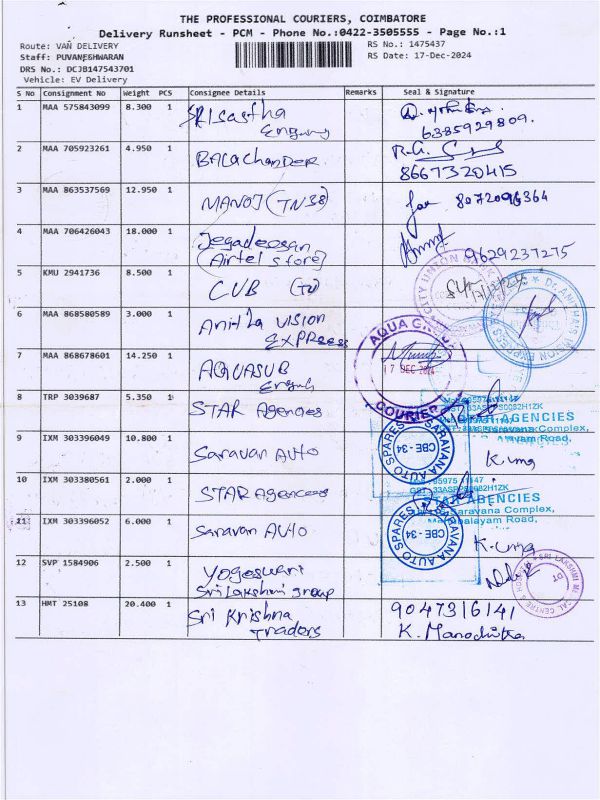 THE PROFESSIONAL COURIERS, COIMBATORE
Delivery Runsheet - PCM - Phone No.:0422-3505555 - Page No.:1
Route: VAN DELIVERY
RS No.: 1475437
Staff: PUVANESHWARAN
RS Date: 17-Dec-2024
DRS No.: DCJB147543701
Vehicle: EV Delivery
S No Consignment No Weight PCS Consignee Details Remarks Seal & Signature
1 MAA 575843099 8.300 1 SRISastha
6385929809.
2 MAA 705923261 4.950 1 BALAChANDER R.G.
8667320415
3 MAA 863537569 12.950 1 MANOJ (TN38) 8072096364
4 MAA 706426043 18.000 1 Jegadeesan
(Airtel Store) 9629237275
5 KMU 2941736 8.500 1 CUB
CITY UNION
6 MAA 868580589 3.000 1 Anitha VISION
EXPRESS
7 MAA 868678601 14.250 1 AQUASUB
AQUA
17 DEC 2024
COURIER
8 TRP 3039687 5.350 1 STAR Agencies
AGENCIES
Saravana Complex,
9 IXM 303396049 10.800 1 Saravan AUTO
SARAVANA AUTO SPARES
CBE - 34
10 IXM 303380561 2.000 1 STAR Agencees
AGENCIES
Saravana Complex,
11 IXM 303396052 6.000 1 Saravan AUTO
SARAVANA AUTO SPARES
CBE - 34
12 SVP 1584906 2.500 1 Yogeswari
Sri Lakshmi group
SRI LAKSHMI
13 HMT 25108 20.400 1 Sri Krishna 9047316141
Traders K. Manochitra